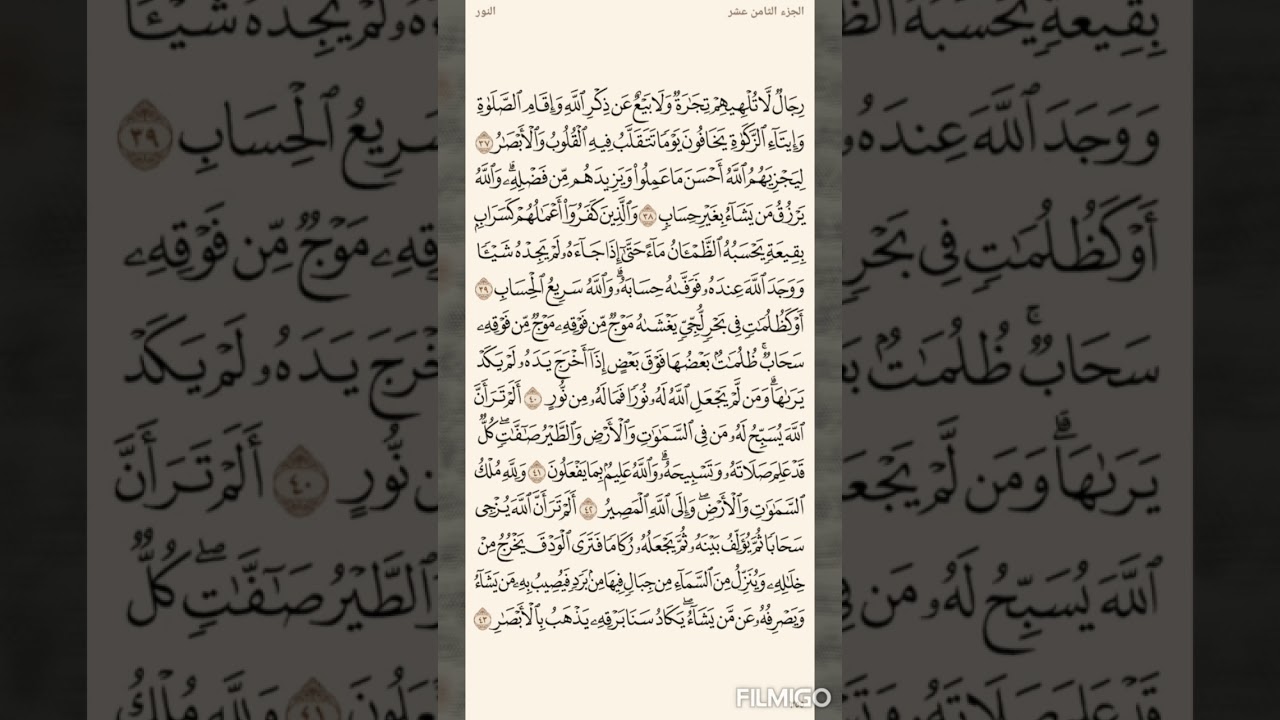 الجزء الثامن عشر
النور
رِجَالٌ لَّا تُلْهِيهِمْ تِجَٰرَةٌ وَلَا بَيْعٌ عَن ذِكْرِ ٱللَّهِ وَإِقَامِ ٱلصَّلَوٰةِ
وَإِيتَآءِ ٱلزَّكَوٰةِ يَخَافُونَ يَوْمًا تَتَقَلَّبُ فِيهِ ٱلْقُلُوبُ وَٱلْأَبْصَٰرُ ٣٧
لِيَجْزِيَهُمُ ٱللَّهُ أَحْسَنَ مَا عَمِلُوا۟ وَيَزِيدَهُم مِّن فَضْلِهِۦ ۗ وَٱللَّهُ
يَرْزُقُ مَن يَشَآءُ بِغَيْرِ حِسَابٍ ٣٨ وَٱلَّذِينَ كَفَرُوٓا۟ أَعْمَٰلُهُمْ كَسَرَابٍۭ
بِقِيعَةٍ يَحْسَبُهُ ٱلظَّمْـَٔانُ مَآءً حَتَّىٰٓ إِذَا جَآءَهُۥ لَمْ يَجِدْهُ شَيْـًٔا
وَوَجَدَ ٱللَّهَ عِندَهُۥ فَوَفَّىٰهُ حِسَابَهُۥ ۗ وَٱللَّهُ سَرِيعُ ٱلْحِسَابِ ٣٩
أَوْ كَظُلُمَٰتٍ فِى بَحْرٍ لُّجِّىٍّ يَغْشَىٰهُ مَوْجٌ مِّن فَوْقِهِۦ مَوْجٌ مِّن فَوْقِهِۦ
سَحَابٌ ۚ ظُلُمَٰتٌۢ بَعْضُهَا فَوْقَ بَعْضٍ إِذَآ أَخْرَجَ يَدَهُۥ لَمْ يَكَدْ
يَرَىٰهَا ۗ وَمَن لَّمْ يَجْعَلِ ٱللَّهُ لَهُۥ نُورًا فَمَا لَهُۥ مِن نُّورٍ ٤٠ أَلَمْ تَرَ أَنَّ
ٱللَّهَ يُسَبِّحُ لَهُۥ مَن فِى ٱلسَّمَٰوَٰتِ وَٱلْأَرْضِ وَٱلطَّيْرُ صَٰٓفَّٰتٍ ۖ كُلٌّ
قَدْ عَلِمَ صَلَاتَهُۥ وَتَسْبِيحَهُۥ ۗ وَٱللَّهُ عَلِيمٌۢ بِمَا يَفْعَلُونَ ٤١ وَلِلَّهِ مُلْكُ
ٱلسَّمَٰوَٰتِ وَٱلْأَرْضِ ۖ وَإِلَى ٱللَّهِ ٱلْمَصِيرُ ٤٢ أَلَمْ تَرَ أَنَّ ٱللَّهَ يُزْجِى
سَحَابًا ثُمَّ يُؤَلِّفُ بَيْنَهُۥ ثُمَّ يَجْعَلُهُۥ رُكَامًا فَتَرَى ٱلْوَدْقَ يَخْرُجُ مِنْ
خِلَٰلِهِۦ وَيُنَزِّلُ مِنَ ٱلسَّمَآءِ مِن جِبَالٍ فِيهَا مِنۢ بَرَدٍ فَيُصِيبُ بِهِۦ مَن يَشَآءُ
وَيَصْرِفُهُۥ عَن مَّن يَشَآءُ ۖ يَكَادُ سَنَا بَرْقِهِۦ يَذْهَبُ بِٱلْأَبْصَٰرِ ٤٣
FILMIGO